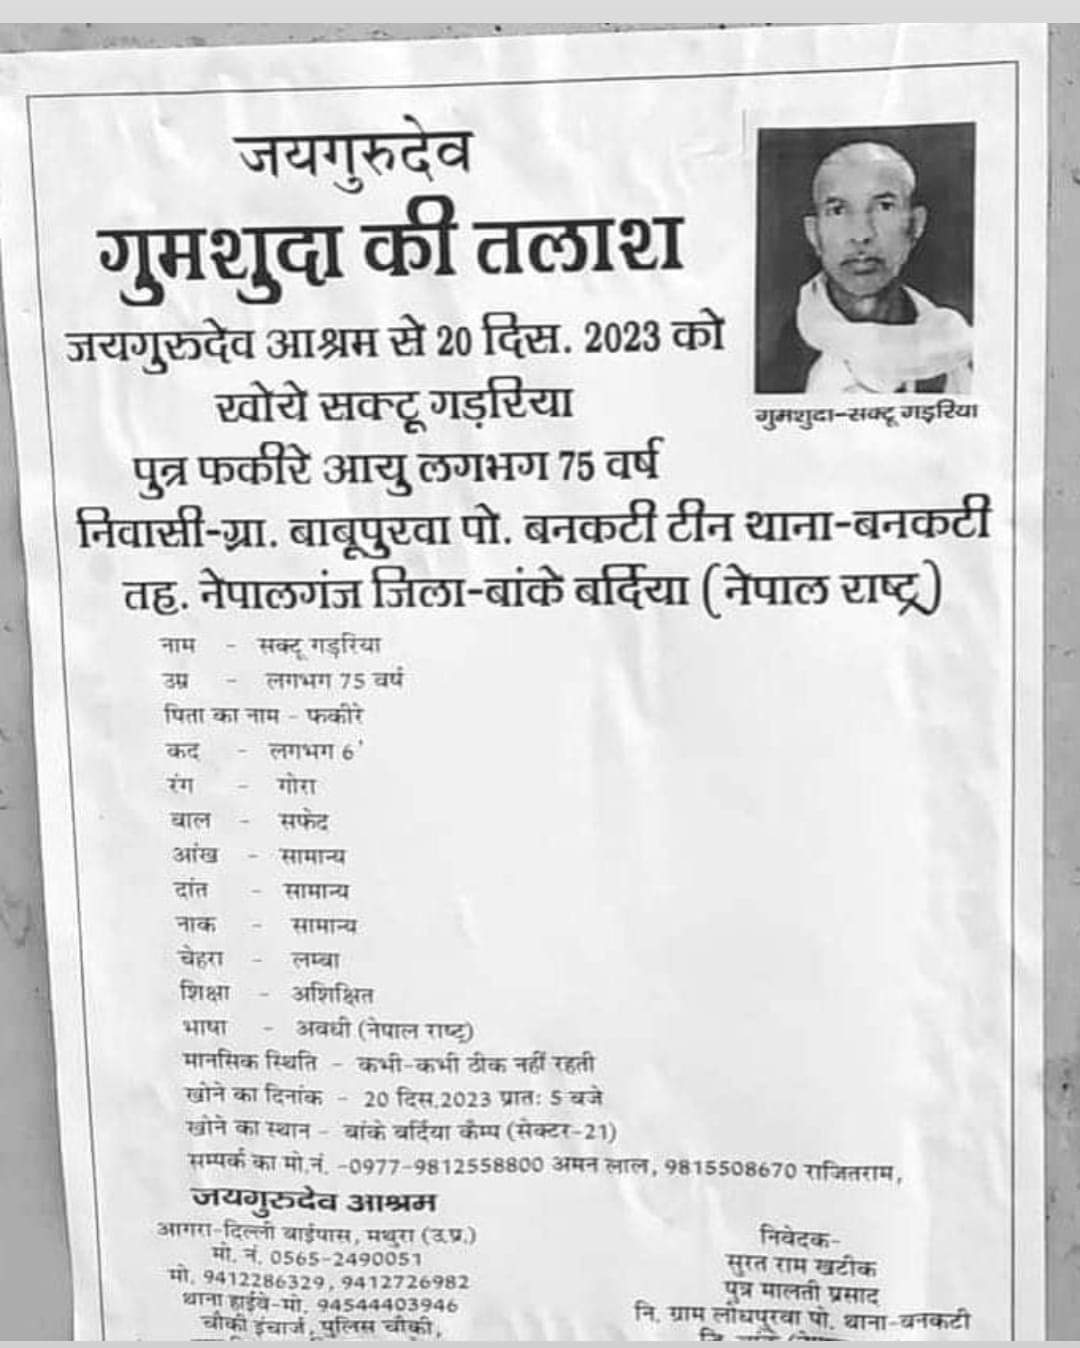 जयगुरुदेव
गुमशुदा की तलाश
जयगुरुदेव आश्रम से 20 दिस. 2023 को
खोये सक्टू गड़रिया
पुत्र फकीरे आयु लगभग 75 वर्ष
निवासी-ग्रा. बाबूपुरवा पो. बनकटी टीन थाना-बनकटी
तह. नेपालगंज जिला-बांके बर्दिया (नेपाल राष्ट्र)
गुमशुदा-सक्टू गड़रिया
नाम - सक्टू गड़रिया
उम्र - लगभग 75 वर्ष
पिता का नाम - फकीरे
कद - लगभग 6'
रंग - गोरा
बाल - सफेद
आंख - सामान्य
दांत - सामान्य
नाक - सामान्य
चेहरा - लम्बा
शिक्षा - अशिक्षित
भाषा - अवधी (नेपाल राष्ट्र)
मानसिक स्थिति - कभी-कभी ठीक नहीं रहती
खोने का दिनांक - 20 दिस.2023 प्रातः 5 बजे
खोने का स्थान - बांके बर्दिया कैम्प (सेक्टर-21)
सम्पर्क का मो.नं. -0977-9812558800 अमन लाल, 9815508670 राजितराम,
जयगुरुदेव आश्रम
आगरा-दिल्ली बाईपास, मथुरा (उ.प्र.)
मो. नं. 0565-2490051
मो. 9412286329, 9412726982
थाना हाईवे-मो. 94544403946
चौकी इंचार्ज, पुलिस चौकी,
निवेदक-
सुरत राम खटीक
पुत्र मालती प्रसाद
नि. ग्राम लोधपुरवा पो. थाना-बनकटी